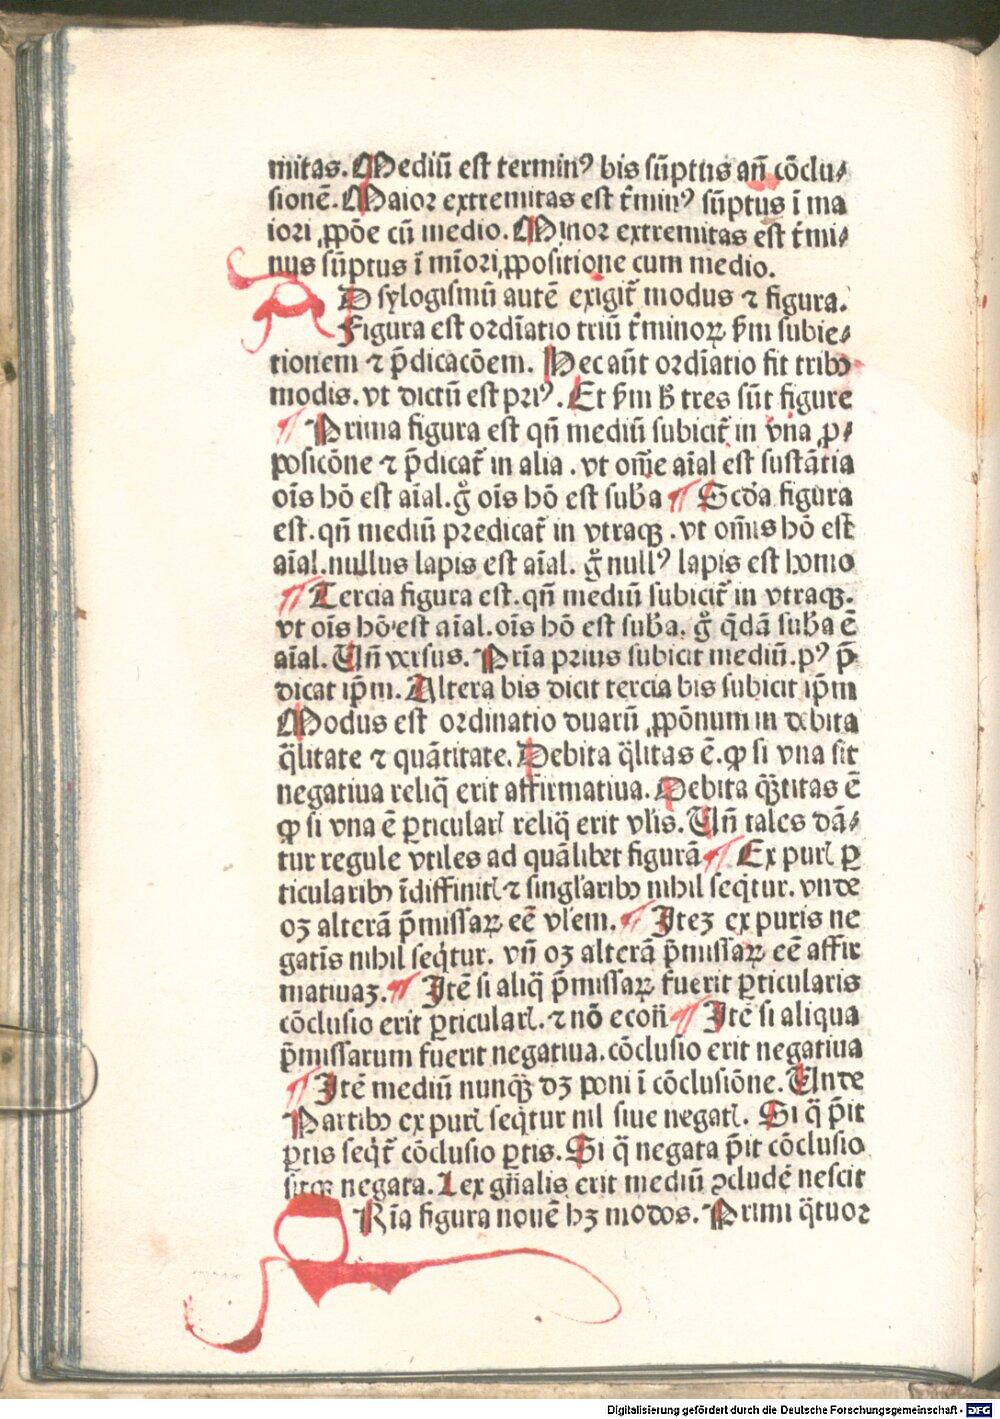 mitas. Mediū est terminꝰ bis sūptus añ cōclu⸗
sionē. Maior extremitas est t̄minꝰ sūptus ī ma
iori ꝓpōe cū medio. Minor extremitas est t̄mi⸗
nus sūptus ī mīori ꝓpositione cum medio.
AD sylogismū autē exigit̄ modus ⁊ figura.
Figura est ordīatio triū t̄minoꝝ ẜm subie⸗
tionem ⁊ p̄dicacōem. Hec aūt ordīatio fit tribꝫ
modis. vt dictū est priꝰ. Et ẜm ħ tres sūt figure
¶ Prima figura est qñ mediū subicit̄ in vna ꝓ⸗
posicōne ⁊ p̄dicat̄ in alia . vt om̄e aīal est sustātia
oīs hō est aīal. gͦ oīs hō est suba ¶ Scd̄a figura
est. qñ mediū predicat̄ in vtraqꝫ . vt om̄is hō est
aīal. nullus lapis est aīal. gͦ nullꝰ lapis est homo
¶ Tercia figura est. qñ mediū subicit̄ in vtraqꝫ.
vt oīs hō est aīal. oīs hō est suba. gͦ q̄dā suba ē
aīal. Uñ versus. Prīa prius subicit mediū. pꝰ p̄
dicat ip̄m. Altera bis dicit tercia bis subicit ip̄m
Modus est ordinatio duarū ꝓpōnum in debita
q̄litate ⁊ quātitate. Debita q̄litas ē. ꝙ si vna sit
negatiua reliq̄ erit affirmatiua. Debita q̄ꝫtitas ē
ꝙ si vna ē ꝑticularꝭ reliq̄ erit vl̄is. Uñ tales dā⸗
tur regule vtiles ad quālibet figurā ¶ Ex purꝭ ꝑ
ticularibꝫ īdiffinitꝭ ⁊ singl̄aribꝫ nihil seqͥtur. vnde
oꝫ alterā p̄missaꝝ eē vl̄em. ¶ Iteꝫ ex puris ne
gatīs nihil seqͥtur. vñ oꝫ alterā p̄missaꝝ eē affir
matiuaꝫ. ¶ Itē si aliq̄ p̄missaꝝ fuerit ꝑticularis
cōclusio erit ꝑticularꝭ. ⁊ nō ecoñ ¶ Itē si aliqua
p̄missarum fuerit negatiua. cōclusio erit negatiua
¶ Itē mediū nunqꝫ dꝫ poni ī cōclusiōne. Unde
Partibꝫ ex purꝭ seqͥtur nil siue negatꝭ. Si q̄ p̄it
ꝑtis seqͥt̄ cōclusio ꝑtis. Si q̄ negata p̄it cōclusio
sitqꝫ negata. Lex gn̄alis erit mediū ꝯcludē nescit
PRīa figura nouē hꝫ modos. Primi q̄tuor
Digitalisierung gefördert durch die Deutsche Forschungsgemeinschaft - DFG